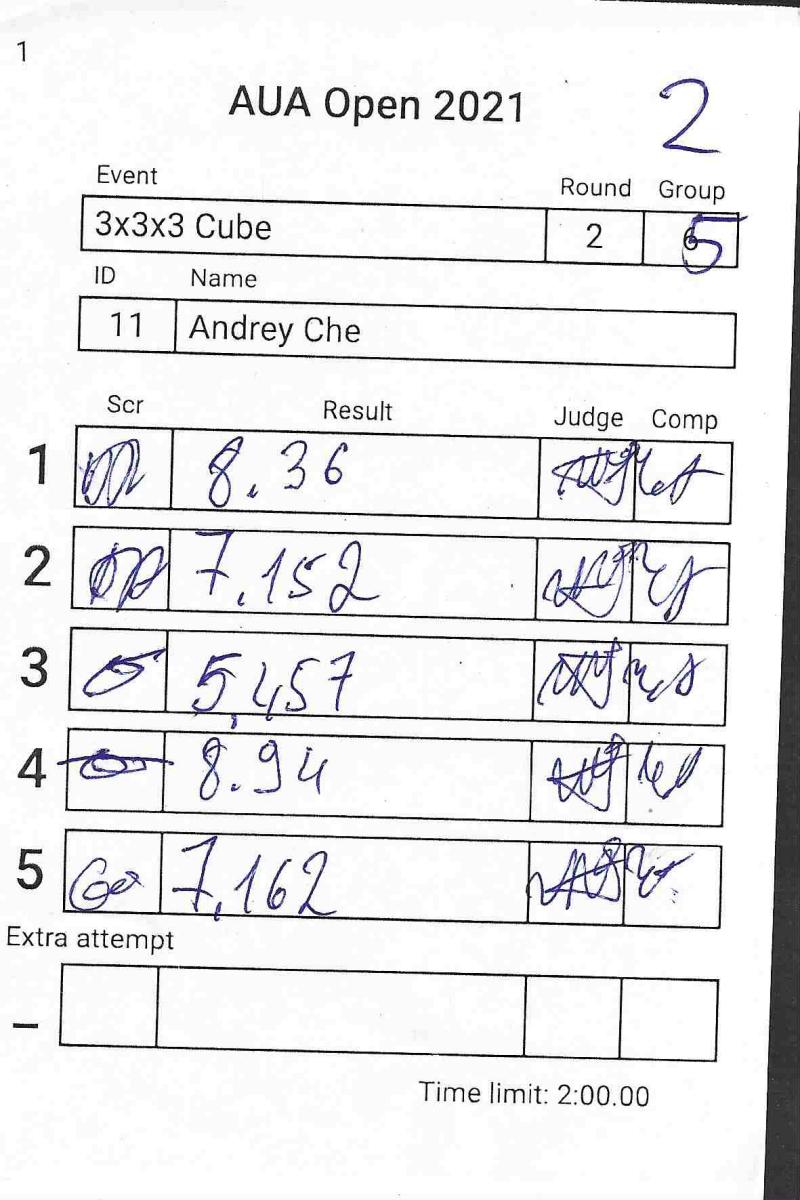 1
AUA Open 2021 2
Event Round Group
3x3x3 Cube 2 5
ID Name
11 Andrey Che
Scr Result Judge Comp
1 8.36
2 7.152
3 5,457
4 8.94
5 7,162
Extra attempt
–
Time limit: 2:00.00